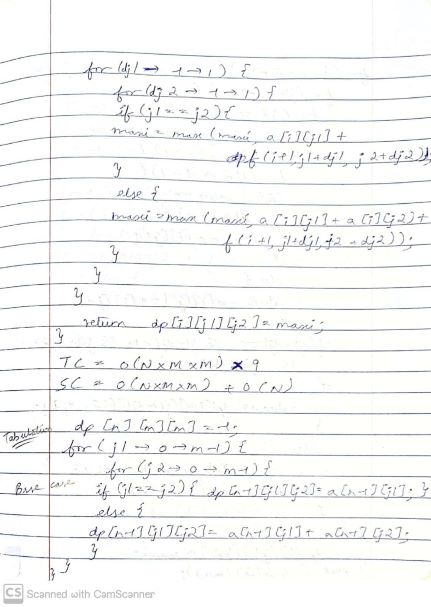 for (dj1 → -1 → 1) {
for (dj2 → -1 → 1) {
if (j1 == j2) {
maxi = max (maxi, a[i][j1] +
f (i+1, j1+dj1, j2+dj2));
}
else {
maxi = max (maxi, a[i][j1] + a[i][j2] +
f (i+1, j1+dj1, j2+dj2));
}
}
}
return dp[i][j1][j2] = maxi;
}
TC = O(N×M×M) × 9
SC = O(N×M×M) + O(N)
Tabulation dp [n] [m] [m] = -1;
for (j1 → 0 → m-1) {
for (j2 → 0 → m-1) {
Base case if (j1 == j2) { dp[n-1][j1][j2] = a[n-1][j1]; }
else {
dp[n-1][j1][j2] = a[n-1][j1] + a[n-1][j2];
}
} }
CS Scanned with CamScanner